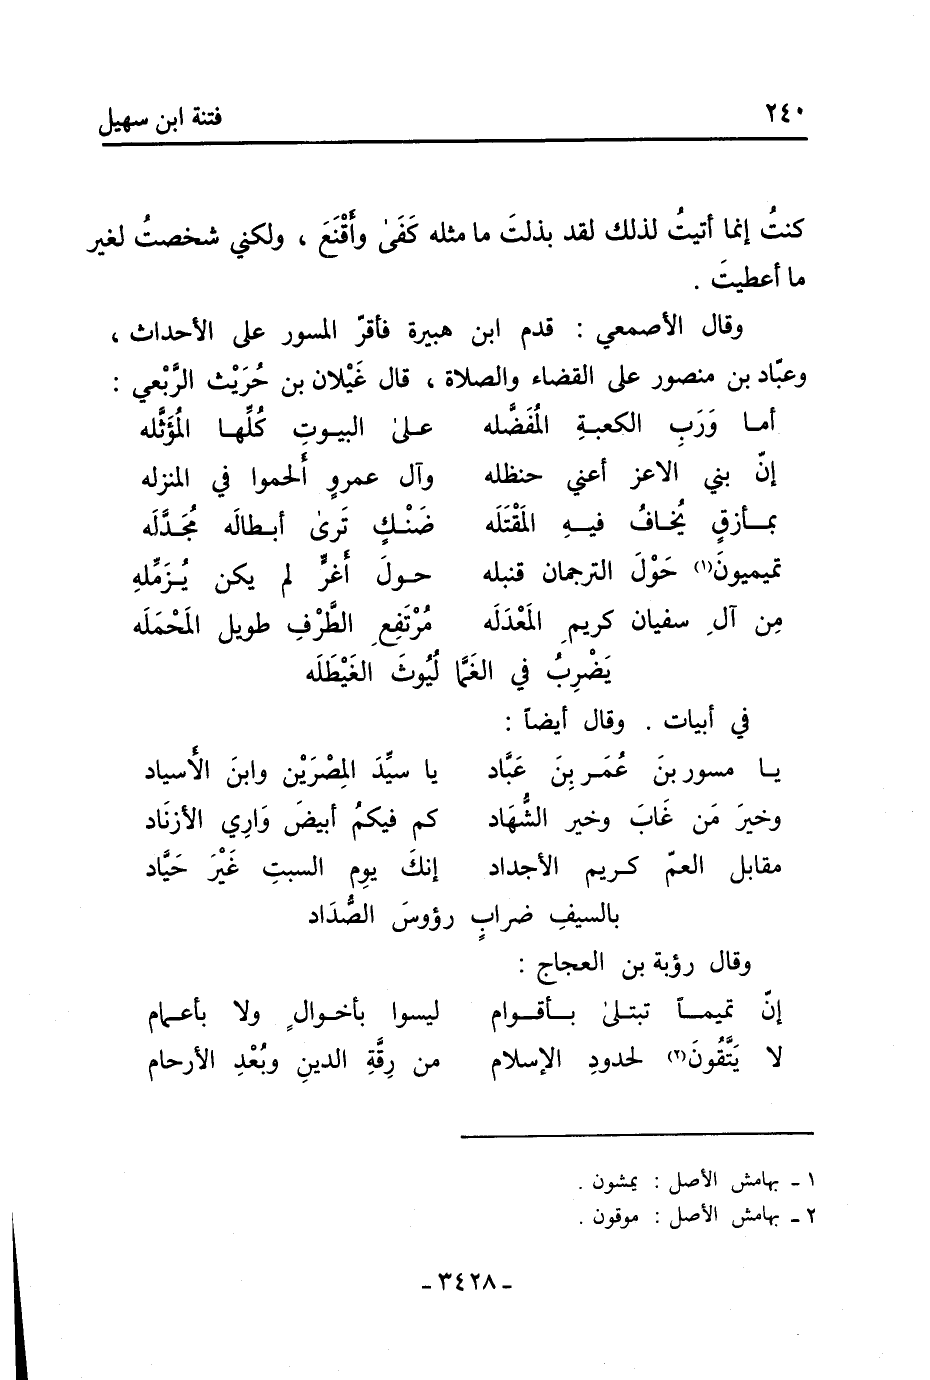 ٢٤٠ فتنة ابن سهيل
كنتُ إنما أتيتُ لذلك لقد بذلتَ ما مثله كَفَىٰ وأَقْنَعَ ، ولكني شخصتُ لغير
ما أعطيتَ .
وقال الأصمعي : قدم ابن هبيرة فأقرّ المسور على الأحداث ،
وعبّاد بن منصور على القضاء والصلاة ، قال غَيْلان بن حُرَيْث الرَّبْعي :
أما وَرَبِ الكعبةِ المُفَضَّله علىٰ البيوتِ كُلِّها المُؤَثَّله
إنّ بني الاعز أعني حنظله وآل عمروٍ أَلحموا في المنزله
بمأزقٍ يُخافُ فيهِ المَقْتَلَه ضَنْكٍ تَرىٰ أبطالَه مُجَدَّلَه
تميميونَ(١) حَوْلَ الترجمان قنبله حولَ أَغرٍّ لم يكن يُزَمِّلهِ
مِن آلِ سفيان كريمِ المَعْدَلَه مُرْتَفِعِ الطَّرْفِ طويل المَحْمَلَه
يَضْرِبُ في الغَمَّا لُيُوثَ الغَيْطَلَه
في أبيات . وقال أيضاً :
يا مسور بنَ عُمَر بِنَ عَبَّاد يا سيِّدَ المِصْرَيْن وابنَ الأَسياد
وخيرَ مَن غَابَ وخير الشُّهَاد كم فيكمُ أبيضَ وَارِي الأزنَاد
مقابل العمّ كريم الأجداد إنكَ يومِ السبتِ غَيْرَ حَيَّاد
بالسيفِ ضرابٍ رؤوسَ الصُّدَاد
وقال رؤبة بن العجاج :
إنّ تميماً تبتلىٰ بأقوام ليسوا بأخوالٍ ولا بأعمام
لا يَتَّقُونَ(٢) لحدودِ الإسلام من رِقَّةِ الدينِ وبُعْدِ الأرحام
١ ـ بهامش الأصل : يمشون .
٢ ـ بهامش الأصل : موقون .
ـ ٣٤٢٨ ـ